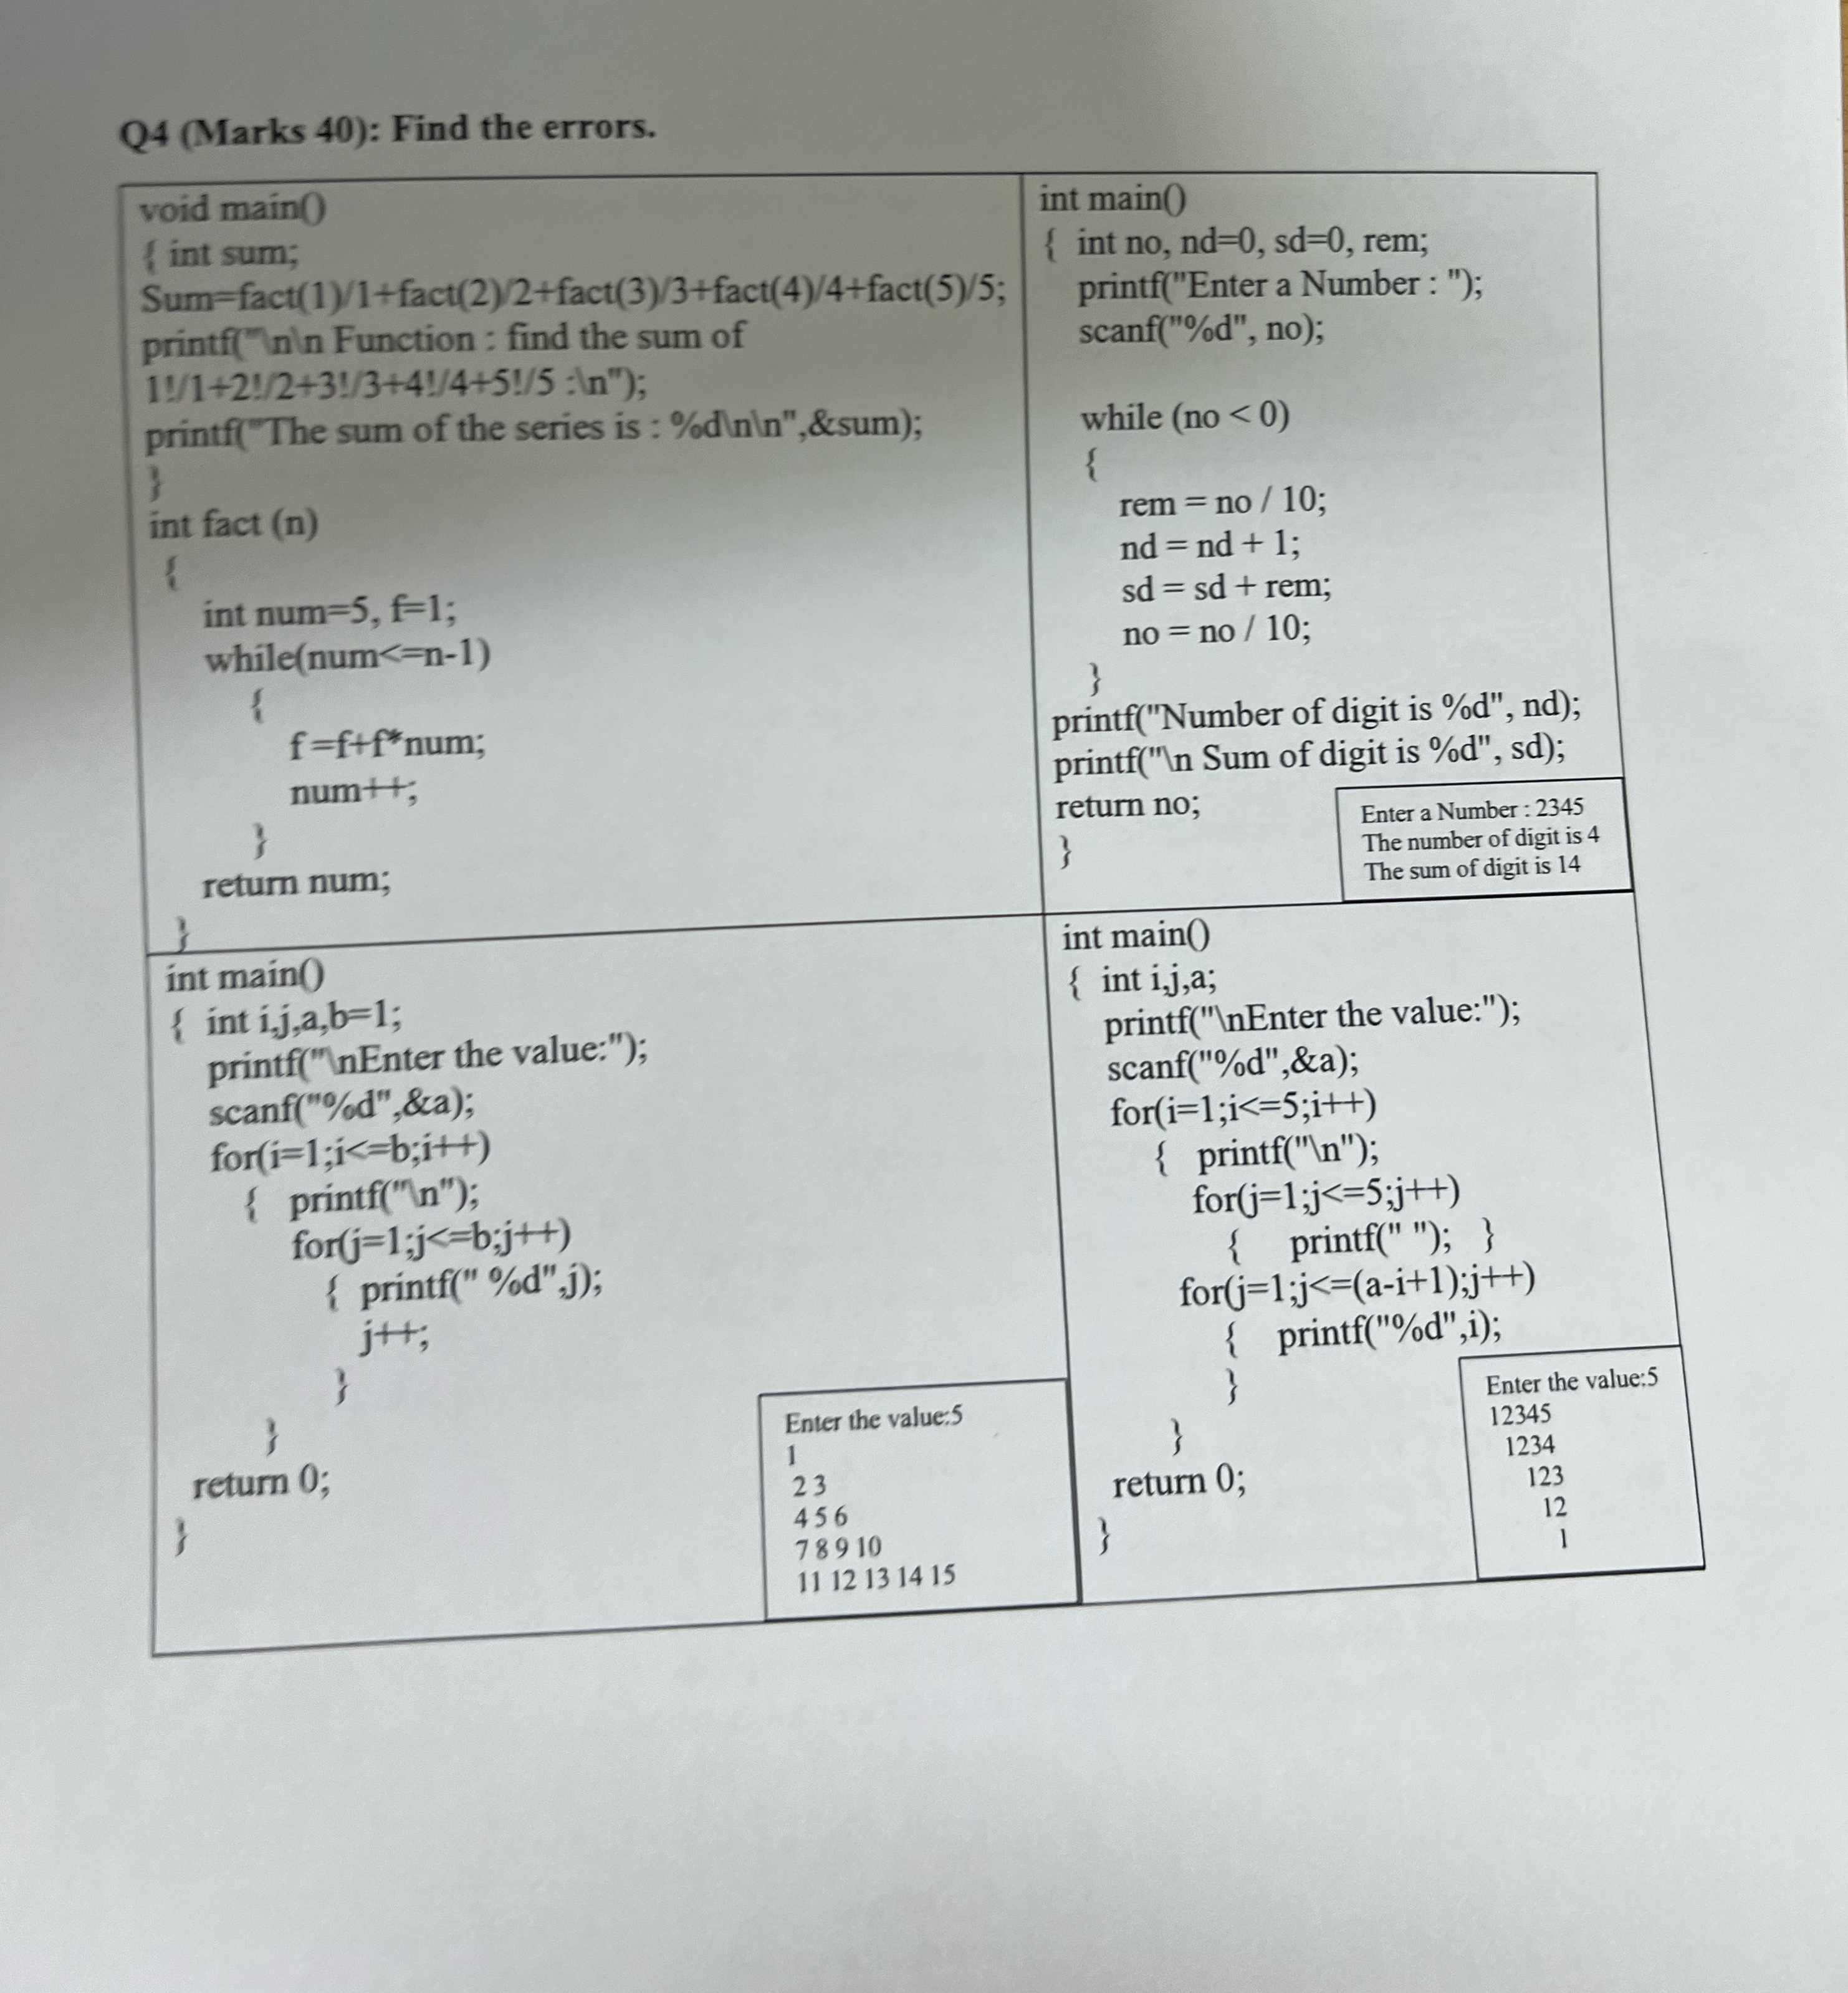 Q4 (Marks 40): Find the errors.
void main()
{ int sum;
Sum=fact(1)/1+fact(2)/2+fact(3)/3+fact(4)/4+fact(5)/5;
printf("\n\n Function : find the sum of
1!/1+2!/2+3!/3+4!/4+5!/5 :\n");
printf("The sum of the series is : %d\n\n",&sum);
}
int fact (n)
{
int num=5, f=1;
while(num<=n-1)
{
f =f+f*num;
num++;
}
return num;
}
int main()
{ int no, nd=0, sd=0, rem;
printf("Enter a Number : ");
scanf("%d", no);
while (no < 0)
{
rem = no / 10;
nd = nd + 1;
sd = sd + rem;
no = no / 10;
}
printf("Number of digit is %d", nd);
printf("\n Sum of digit is %d", sd);
return no;
}
Enter a Number : 2345
The number of digit is 4
The sum of digit is 14
int main()
{ int i,j,a,b=1;
printf("\nEnter the value:");
scanf("%d",&a);
for(i=1;i<=b;i++)
{ printf("\n");
for(j=1;j<=b;j++)
{ printf(" %d",j);
j++;
}
}
return 0;
}
Enter the value:5
1
2 3
4 5 6
7 8 9 10
11 12 13 14 15
int main()
{ int i,j,a;
printf("\nEnter the value:");
scanf("%d",&a);
for(i=1;i<=5;i++)
{ printf("\n");
for(j=1;j<=5;j++)
{ printf(" "); }
for(j=1;j<=(a-i+1);j++)
{ printf("%d",i);
}
}
return 0;
}
Enter the value:5
12345
1234
123
12
1